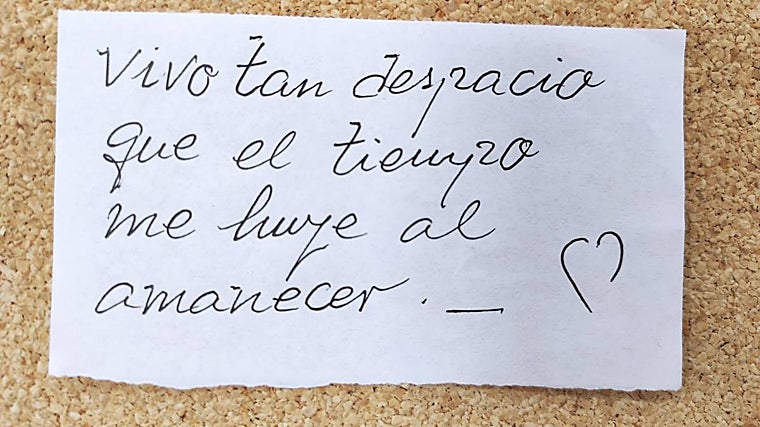 Vivo tan despacio
que el tiempo
me huye al
amanecer. _